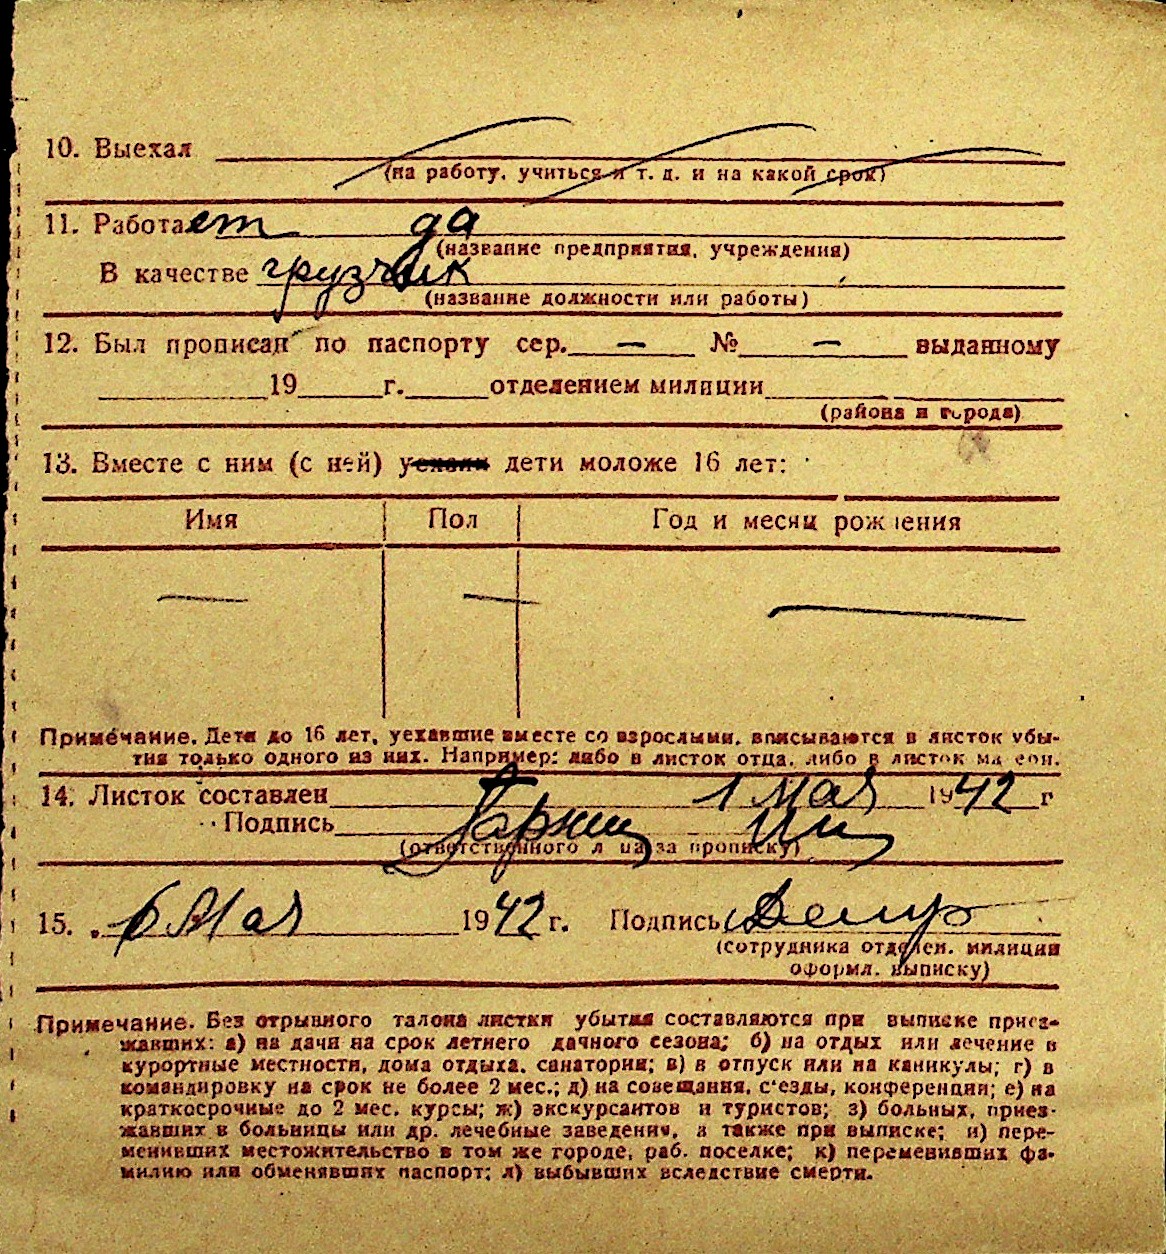 10. Выехал
(на работу, учиться и т. д. и на какой срок)
11. Работает да
(название предприятия, учреждения)
В качестве грузчик
(название должности или работы)
12. Был прописан по паспорту сер. — № — выданному
19 г. отделением милиции
(района и города)
13. Вместе с ним (с ней) уехали дети моложе 16 лет:
Имя Пол Год и месяц рождения
— — —
Примечание. Дети до 16 лет, уехавшие вместе со взрослыми, вписываются в листок убы-
тия только одного из них. Например: либо в листок отца, либо в листок матери.
14. Листок составлен 1 мая 1942 г
Подпись
(ответственного лица за прописку)
15. 6 Мая 1942 г. Подпись
(сотрудника отделен. милиции
оформл. выписку)
Примечание. Без отрывного талона листки убытия составляются при выписке приез-
жавших: а) на дачи на срок летнего дачного сезона; б) на отдых или лечение в
курортные местности, дома отдыха, санатории; в) в отпуск или на каникулы; г) в
командировку на срок не более 2 мес.; д) на совещания, с'езды, конференции; е) на
краткосрочные до 2 мес. курсы; ж) экскурсантов и туристов; з) больных, приез-
жавших в больницы или др. лечебные заведения, а также при выписке; и) пере-
менивших местожительство в том же городе, раб. поселке; к) переменивших фа-
милию или обменявших паспорт; л) выбывших вследствие смерти.